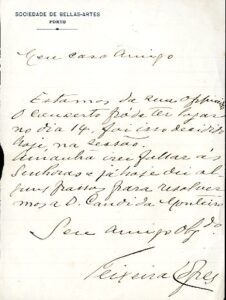 SOCIEDADE DE BELLAS-ARTES
PORTO
Meu caro Amigo
Estamos da sua opinião
O concerto póde ter logar
no dia 14, foi isso decidido
hoje, na sessão.
Amanha irei fallar ás
Senhoras e já hoje dei al
guns passos para resolver
mos a D. Candida Monteiro
Seu amigo Obgdo
Teixeira Lopes